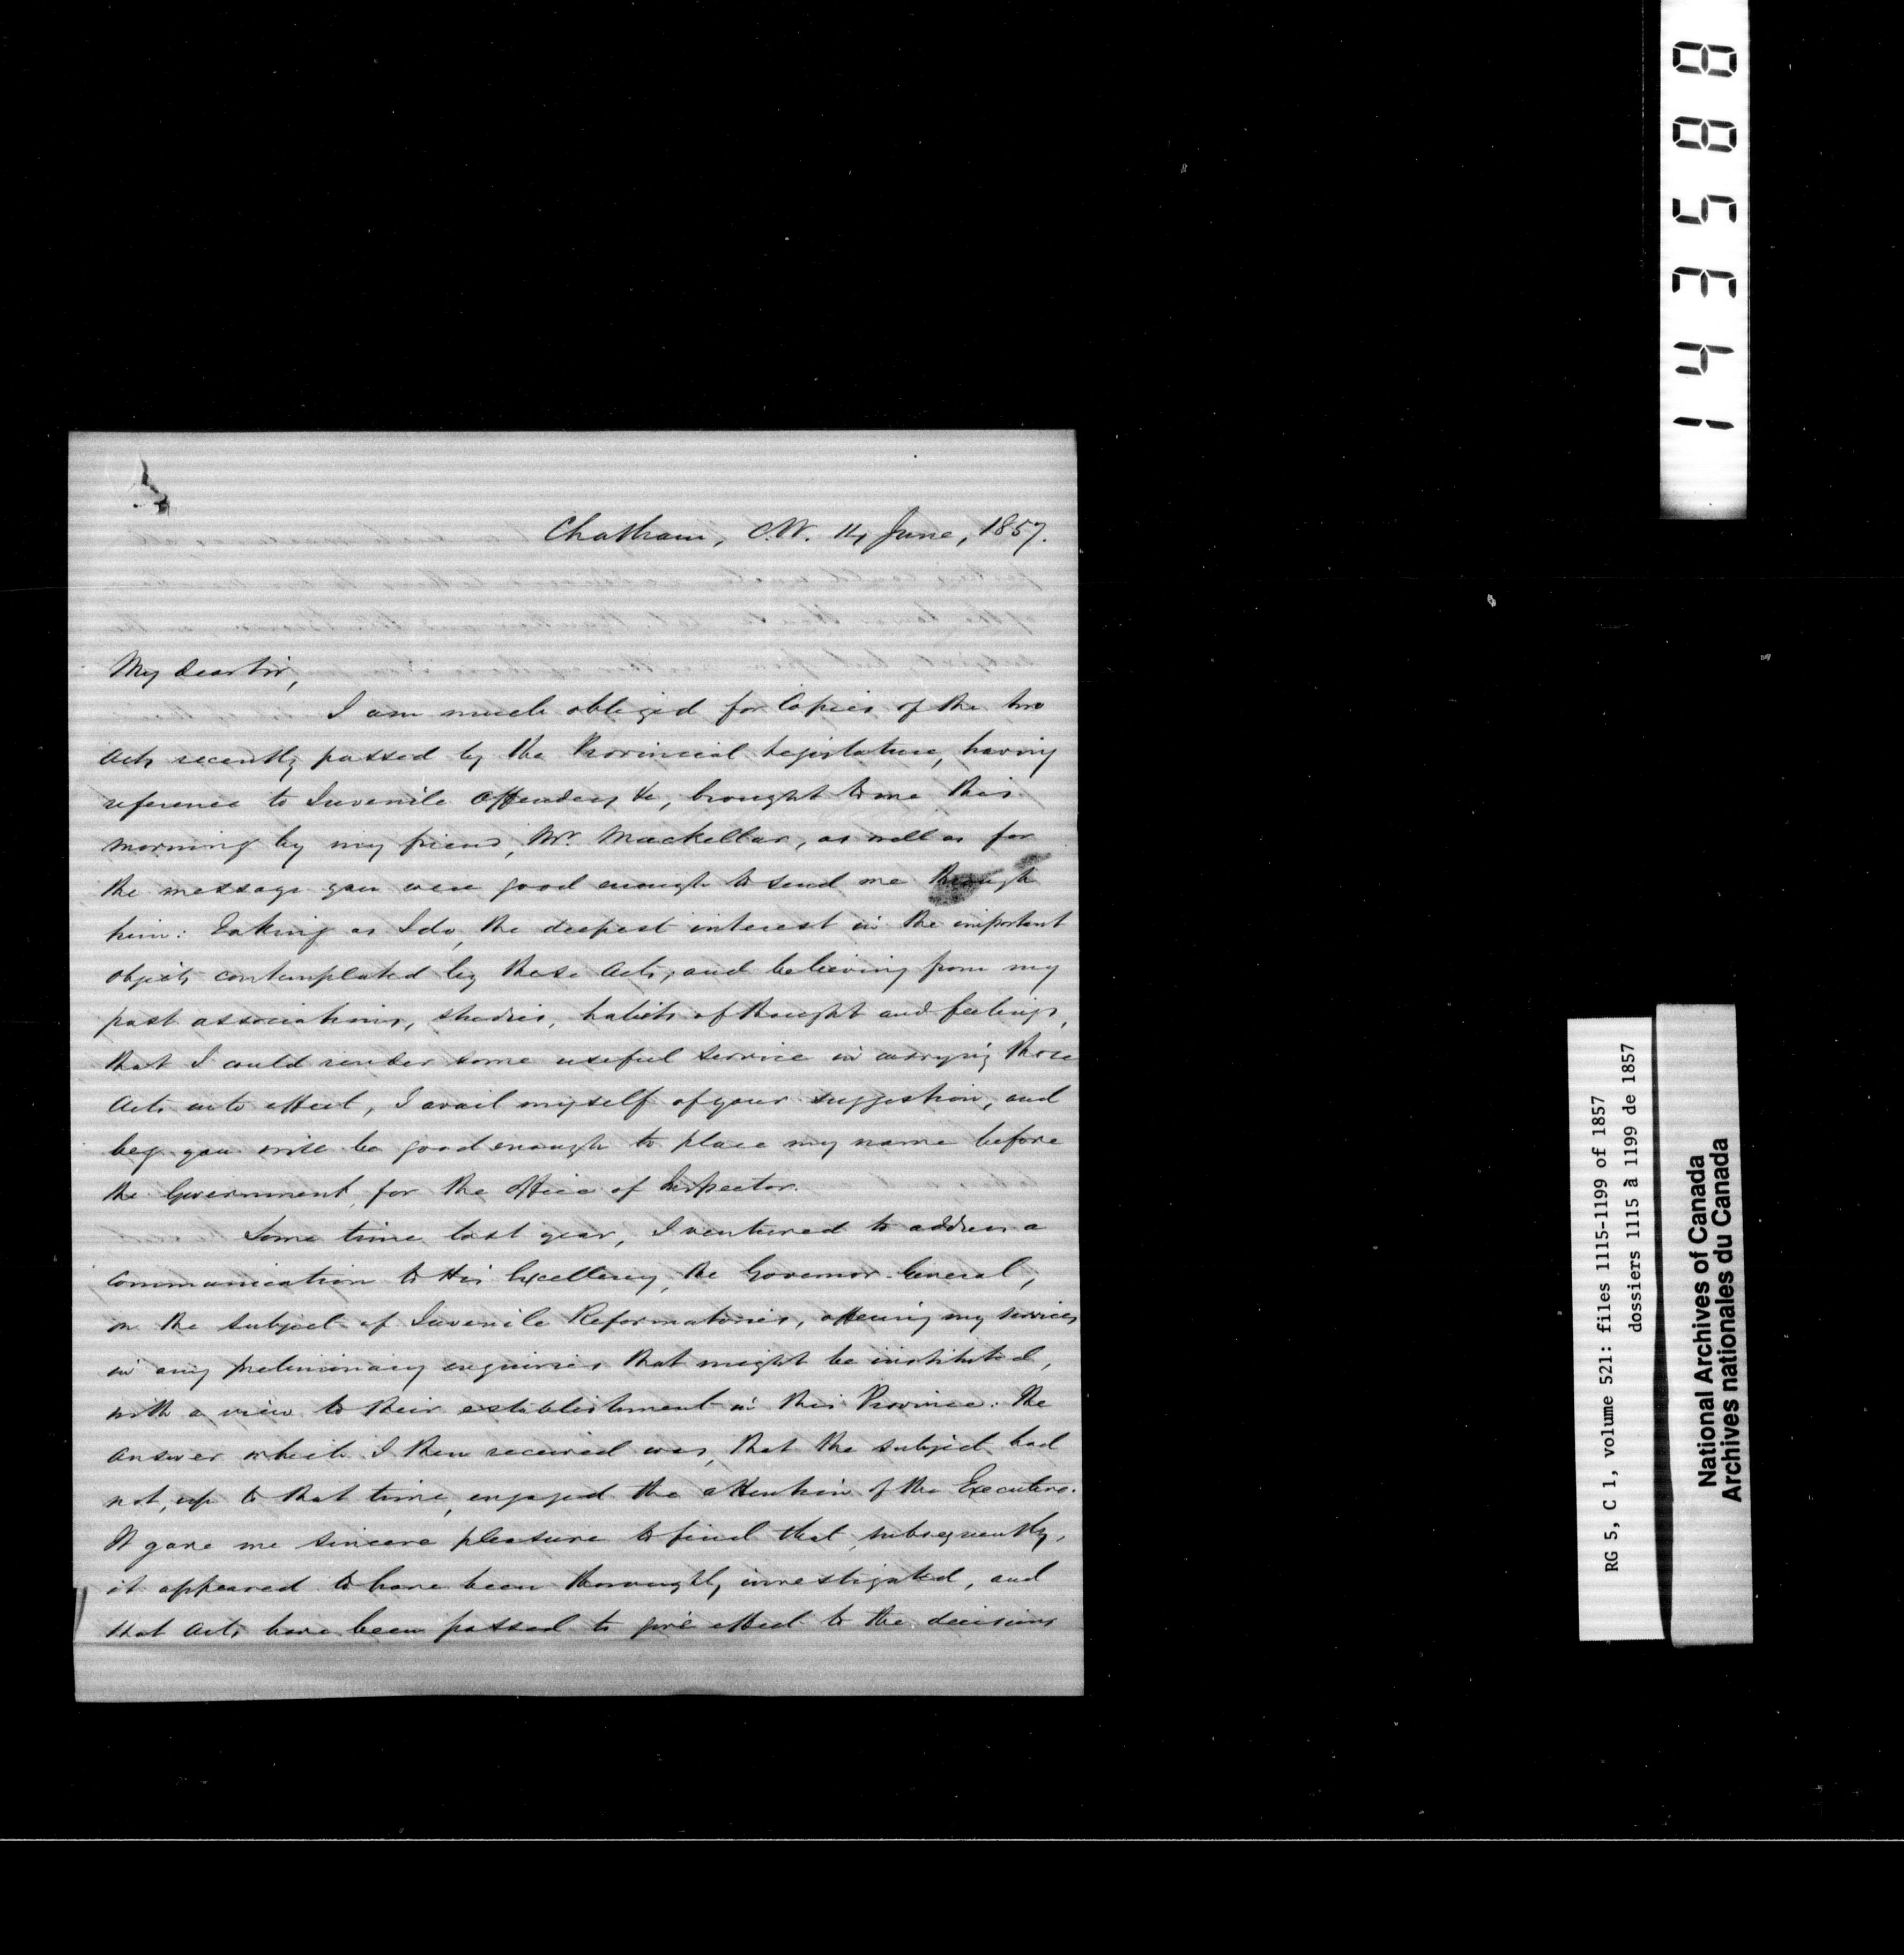 Chatham, C.W. 14 June, 1857.
My dear Sir,
I am much obliged for Copies of the two
Acts recently passed by the Provincial Legislature, having
reference to Juvenile Offenders &c, brought to me this
morning by my friend, Mr. Mackellar, as well as for
the message you were good enough to send me through
him: Taking as I do, the deepest interest in the important
objects contemplated by these Acts, and believing from my
past associations, studies, habits of thought and feelings,
that I could render some useful service in carrying those
Acts into effect, I avail myself of your suggestion, and
beg you will be good enough to place my name before
the Government, for the office of Inspector.
Some time last year, I ventured to address a
communication to His Excellency, the Governor General,
on the subject of Juvenile Reformatories, offering my services
in any preliminary enquiries that might be instituted,
with a view to their establishment in this Province. The
answer which I then received was, that the subject had
not, up to that time, engaged the attention of the Executive.
It gave me sincere pleasure to find that, subsequently,
it appeared to have been thoroughly investigated, and
that Acts have been passed to give effect to the decisions
143588
RG 5, C 1, volume 521: files 1115-1199 of 1857
dossiers 1115 à 1199 de 1857
National Archives of Canada
Archives nationales du Canada